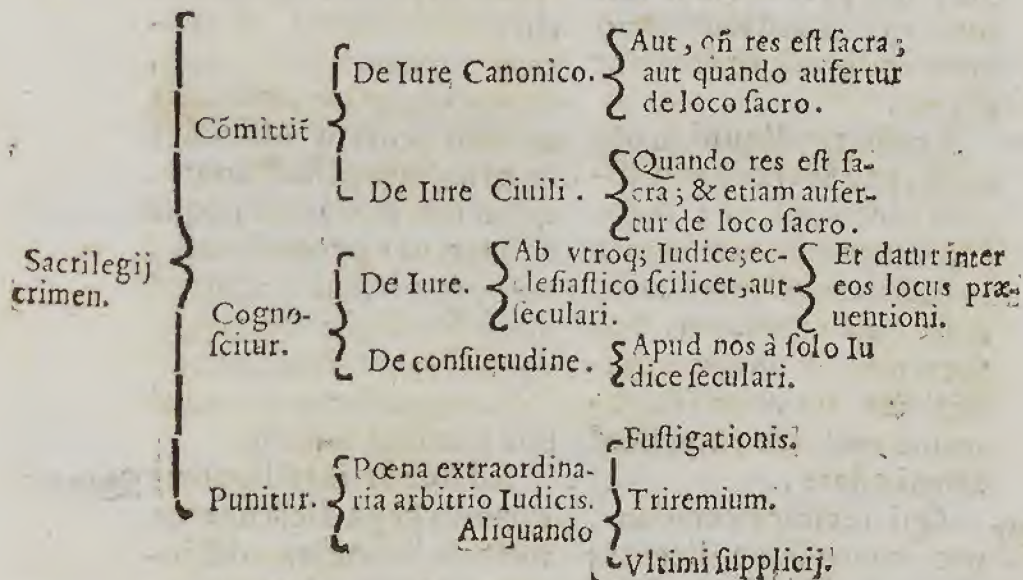 Sacrilegij
crimen.
Cōmittit̃
De Iure Canonico.
Aut, qñ res eſt ſacra;
aut quando aufertur
de loco ſacro.
De Iure Ciuili.
Quando res eſt ſa-
cra; & etiam aufer-
tur de loco ſacro.
Cogno-
ſcitur.
De Iure.
Ab vtroq; Iudice; ec-
cleſiaſtico ſcilicet, aut
ſeculari.
Et datur inter
eos locus præ-
uentioni.
De conſuetudine.
Apud nos à ſolo Iu
dice ſeculari.
Punitur.
Pœna extraordina-
ria arbitrio Iudicis.
Aliquando
Fuſtigationis.
Triremium.
Vltimi ſupplicij.